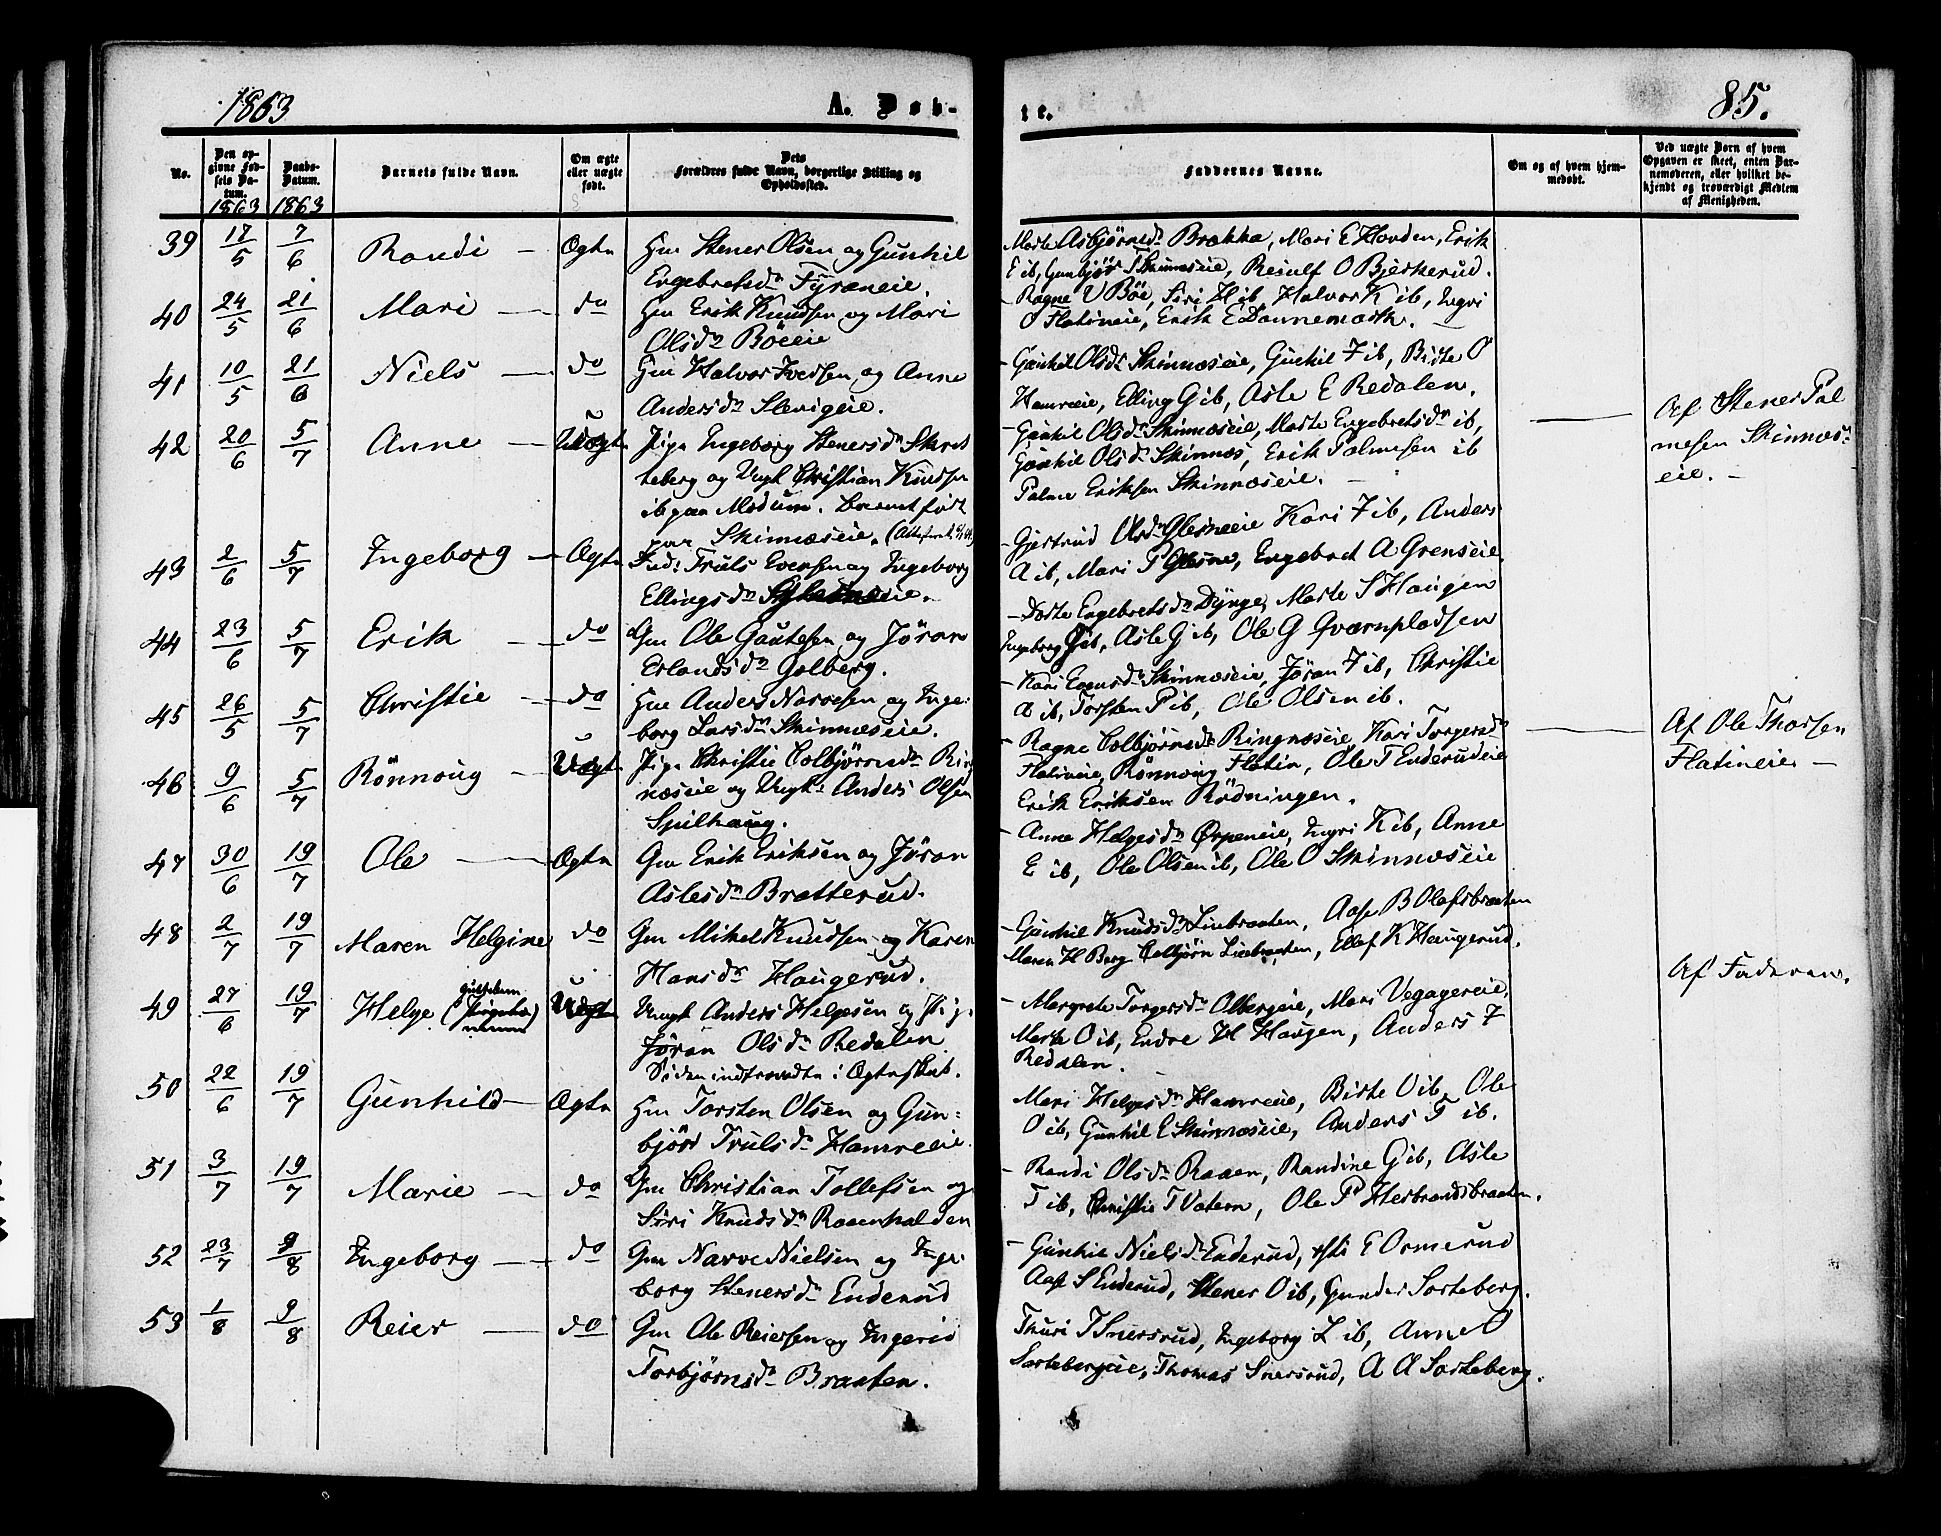 1863
A. Døb-
te.
85.
No.
Den op-
givne Fød-
sels Da-
tum.
1863
Daabs-
Datum.
1863
Barnets fulde Navn.
Om ægte
eller uægte
født.
Dets
Forældres fulde Navn, borgerlige Stilling og
Opholdssted.
Faddernes Navne.
Om og af hvem hjem-
medøbt.
Ved uægte Børn af hvem
Opgaven er skeet, enten Bar-
nemoderen, eller hvilket be-
kjendt og troværdigt Medlem
af Menigheden.
39 17/5 7/6 Randi - Ægte Hm Stener Olsen og Gunhil
Engebretsdr
Marte Asbjørnsdr Brakka, Mari E Hovden, Erik
E ib, Gunbjør Skinnæseie, Reiulf O Bjerkerud.
40 24/5 21/6 Mari - do Hm Erik Knudsen og Mari
Olsdr Böeie
- Ragne V Böe, Siri H ib, Halvor K ib, Ingri
O Flatineie, Erik E Dannemark. -
41 10/5 21/6 Niels - do Hm Halvor Iversen og Anne
Andersdr
- Gunhil Olsdr Skinnæseie, Gunhil T ib, Birte O
Hamreeie, Elling G ib, Asle E Redalen.
42 20/6 5/7 Anne - Uægte Pige Ingeborg Stenersdr Skret
teberg og Ungk Christian Knudsen
ib paa Modum. Barnet født
paa Skinnæseie.
- Gunhil Olsdr Skinnæseie, Marte Engebretsdr ib,
Gunhil Olsdr Skinnæs, Erik Palmesen ib
Palme Eriksen Skinnæseie. -
Af Stener Pal
mesen Skinnæs
eie. -
43 2/6 5/7 Ingeborg - Ægte Ind: Truls Evensen og Ingeborg
Ellingsdr
- Gjertrud Olsdr Glesneeie Kari T ib, Anders
A ib, Mari P Glesne, Engebret A Grenseie
44 23/6 5/7 Erik - do Gm Ole Gautesen og Jöran
Erlandsdr Golberg.
- Dorte Engebretsdr Dynge, Marte S Haugen
Ingeborg G ib, Asle G ib, Ole G Qværnpladsen
45 26/5 5/7 Christie - do Hm Anders Narvesen og Inge-
borg Larsdr Skinnæseie.
- Kari Evensdr Skinnæseie, Jöran T ib, Christie
A ib, Torsten P ib, Ole Olsen ib.
46 9/6 5/7 Rönnoug - Uægte Pige Christie Colbjörnsdr Ring
næseie og Ungk: Anders Olsen
Spilhaug.
- Ragne Colbjörnsdr Ringnæseie, Kari Torgersdr
Flatineie, Rönnoug Flatin, Ole T Enderudeie
Erik Eriksen Rödningen.
Af Ole Thorsen
Flatineie -
47 30/6 19/7 Ole - Ægte Gm Erik Eriksen og Jöran
Aslesdr Bratterud.
- Anne Helgesdr Ørpeneie, Ingri K ib, Anne
E ib, Ole Olsen ib, Ole O Skinnæseie
48 2/7 19/7 Maren Helgine do Gm Mikel Knudsen og Karen
Hansdr Haugerud.
- Gunhil Knudsdr Linbraaten, Aase B Olafsbraaten
Maren H Berg Colbjörn Linbraaten, Ellef K Haugerud.
49 27/6 19/7 Helge Uægte Ungk Anders Helgesen og Pige
Jöran Olsdr Redalen
Siden indtraadte i Ægteskab.
- Margrete Torgersdr Albergeie, Mari Vegagereie,
Marte O ib, Endre H Haugen, Anders T
Redalen.
Af Faderen.
50 22/6 19/7 Gunhild - Ægte Hm Torsten Olsen og Gun-
björ Trulsdr Hamreeie.
Mari Helgesdr Hamreeie, Birte O ib, Ole
O ib, Gunhil E Skinnæseie, Anders T ib.
51 3/7 19/7 Marie - do Gm Christian Tollefsen og
Siri Knudsdr Rosenhalden
- Randi Olsdr Raaen, Randine G ib, Asle
T ib, Christie T Vatern, Ole P Herbrandsbraaten.
52 23/7 9/8 Ingeborg - do Gm Narve Nielsen og Inge-
borg Stenersdr Enderud
- Gunhil Nielsdr Enderud, E Ormerud
Aase S Enderud, Stener O ib, Gunder Sorteberg.
53 1/8 9/8 Reier - do Gm Ole Reiersen og Ingerid
Torbjörnsdr Braaten.
Thuri T Snersrud, Ingeborg L ib, Anne O
Sortebergeie, Thomas Snersrud, A A Sorteberg.